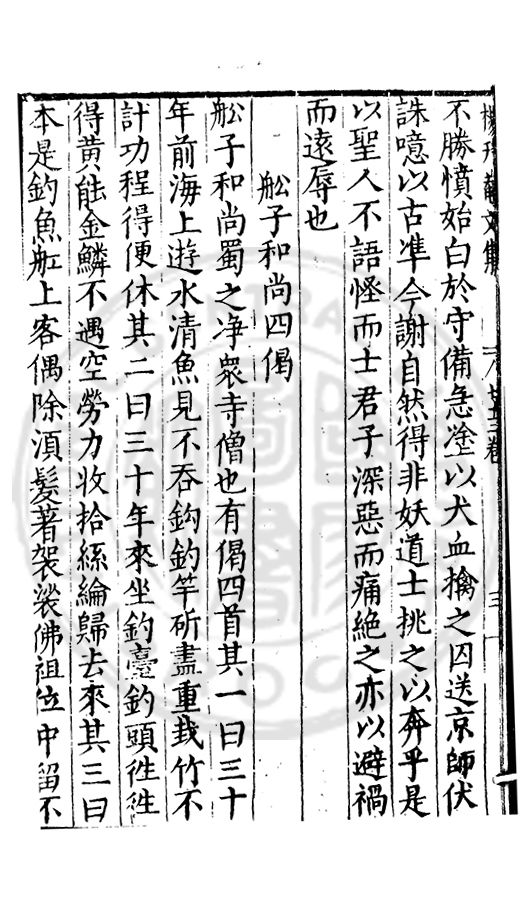 不勝憤始白於守備急塗以犬血擒之囚送京師伏
誅噫以古凖今謝自然得非妖道士挑之以奔乎是
以聖人不語怪而士君子深惡而痛絶之亦以避禍
而遠辱也
舩子和尚四偈
舩子和尚蜀之净衆寺僧也有偈四首其一曰三十
年前海上遊水清魚見不吞鈎釣竿斫盡重栽竹不
計功程得便休其二曰三十年來坐釣臺釣頭徃徃
得黄能金鱗不遇空勞力收拾絲綸歸去來其三曰
本是釣魚舡上客偶除湏髮著袈裟佛祖位中留不